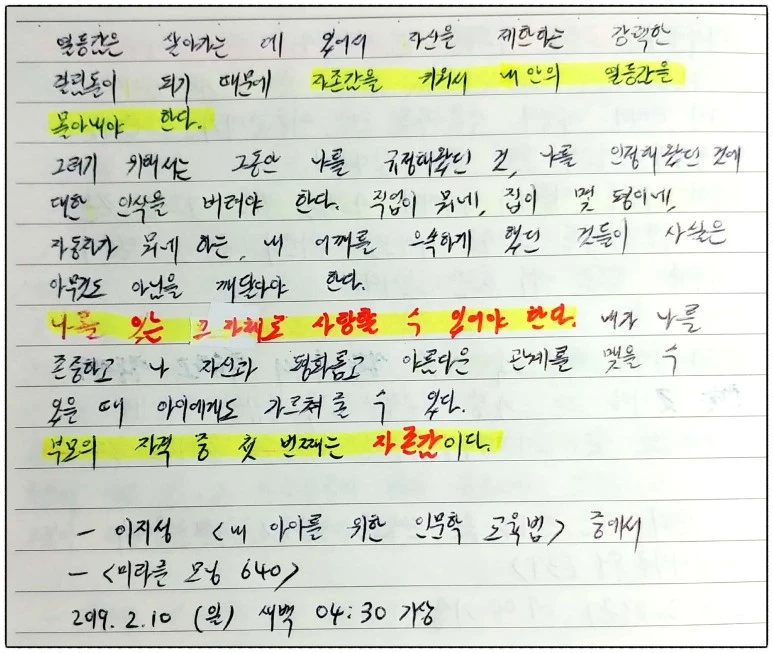 열등감은 살아가는 데 있어서 자신을 제한하는 강력한
걸림돌이 되기 때문에 자존감을 키워서 내 안의 열등감을
몰아내야 한다.
그러기 위해서는 그동안 나를 규정해왔던 것, 나를 인정해 왔던 것에
대한 인식을 버려야 한다. 직업이 뭐네, 집이 몇 평이네,
자동차가 뭐네 하는, 내 어깨를 으쓱하게 했던 것들이 사실은
아무것도 아님을 깨달아야 한다.
나를 있는 그 자체로 사랑할 수 있어야 한다. 내가 나를
존중하고 나 자신과 평화롭고 아름다운 관계를 맺을 수
있을 때 아이에게도 가르쳐 줄 수 있다.
부모의 자격 중 첫 번째는 자존감이다.
- 이지성 <내 아이를 위한 인문학 교육법> 중에서
- <미라클 모닝 640>
2019. 2. 10 (일) 새벽 04:30 기상